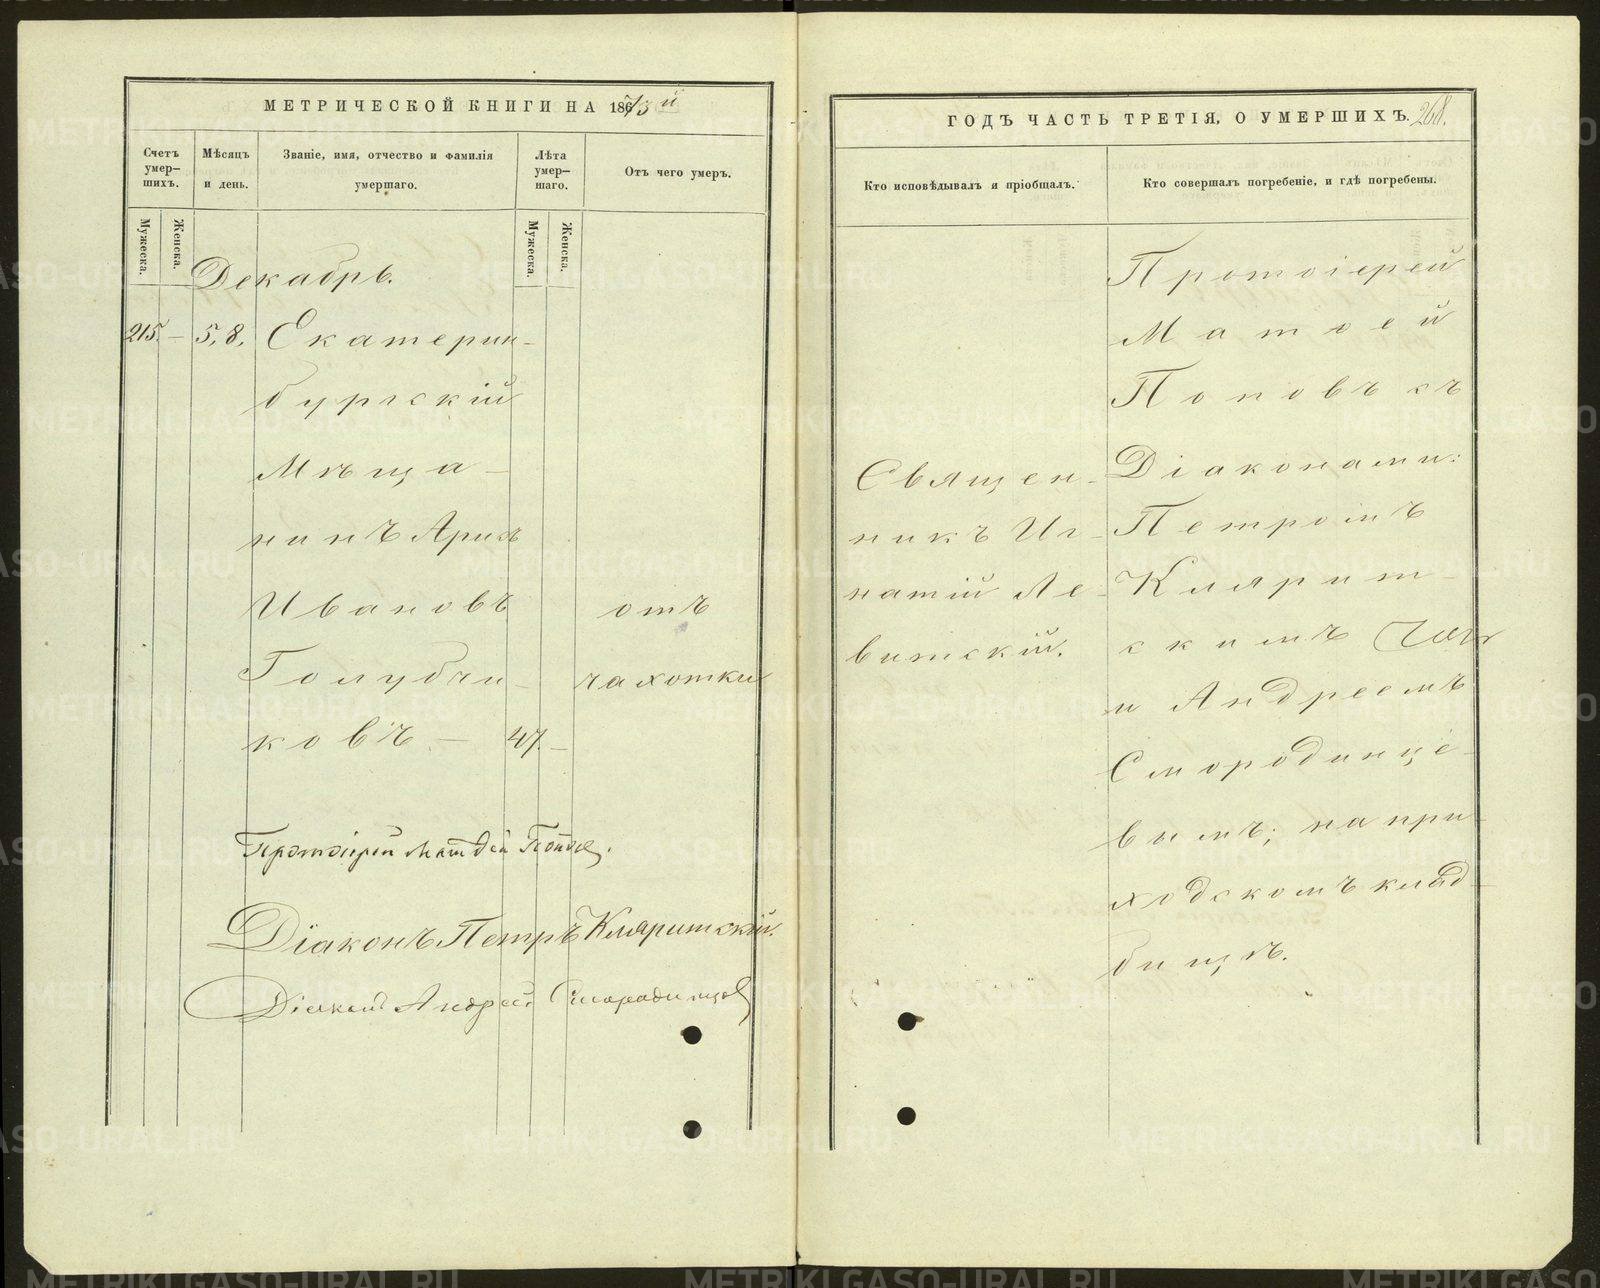 МЕТРИЧЕСКОЙ КНИГИ НА 1873й
Счетъ умер-шихъ.
Мѣсяцъ и день.
Званіе, имя, отчество и фамилія умершаго.
Лѣта умер-шаго.
Отъ чего умеръ.
Мужеска.
Женска.
Мужеска.
Женска.
Декабрь.
215. — 5, 8, Екатерин-
бургскій
Мѣща-
нинъ
Ивановъ
Голубчи-
ковъ. — 47. —
отъ
чахотки
Протоіерей Матѳей Поповъ.
Діаконъ Петръ Кляритскій.
Діаконъ Андрей Смородинцовъ
ГОДЪ ЧАСТЬ ТРЕТІЯ, О УМЕРШИХЪ. 268.
Кто исповѣдывалъ и пріобщалъ.
Кто совершалъ погребеніе, и гдѣ погребены.
Священ-
никъ Иг-
натій Ле-
витскій.
Протоіерей
Матѳей
Поповъ съ
Діаконами:
Петромъ
Клярит-
скимъ
и Андреемъ
Смородинце-
вымъ; на при-
ходскомъ клад-
бищѣ.
METRIKI.GASO-URAL.RU